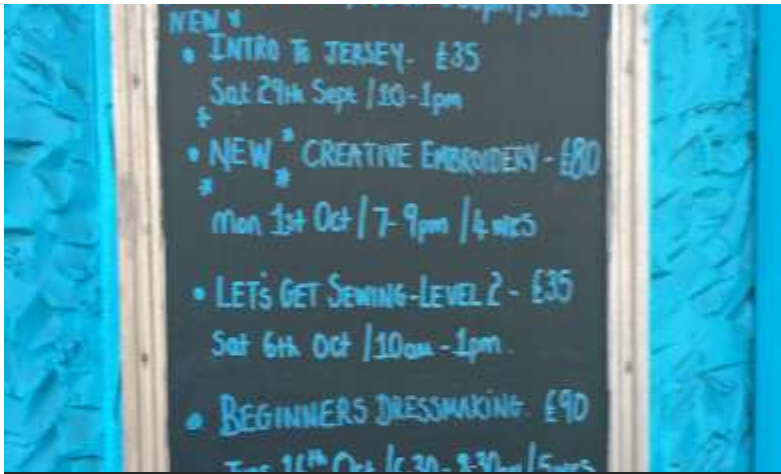 NEW *
• INTRO TO JERSEY - £35
Sat 29th Sept / 10-1pm
• NEW * CREATIVE EMBROIDERY - £80
Mon 1st Oct / 7-9pm / 4 wks
• LET'S GET SEWING-LEVEL 2 - £35
Sat 6th Oct / 10am - 1pm.
• BEGINNERS DRESSMAKING £90
Tues 16th Oct / 6.30 - 8.30pm / 5wks